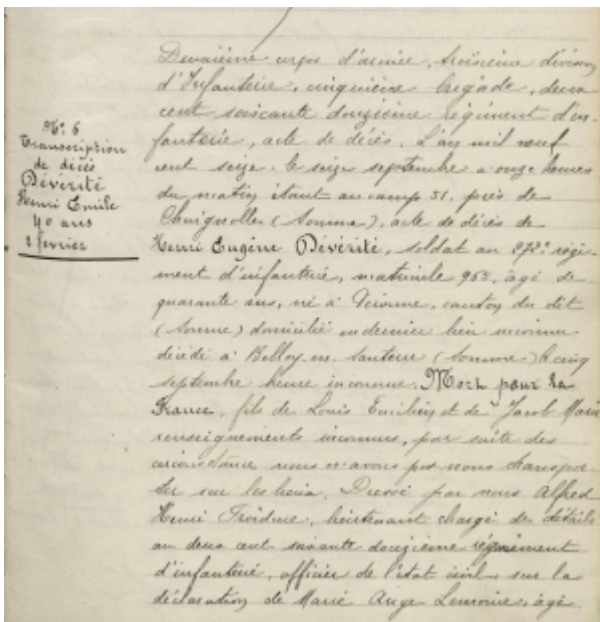 Nº 6
Transcription
de décès
Dévérité
Henri Emile
40 ans
2 février
Deuxième corps d'armée, troisième division
d'Infanterie, cinquième brigade, deux
cent soixante douzième régiment d'in-
fanterie, acte de décès. L'an mil neuf
cent seize le seize septembre à onze heures
du matin étant au camp 51, près de
Chuignolles (Somme), acte de décès de
Henri Eugène Dévérité, soldat au 272e régi-
ment d'infanterie, matricule 963, âgé de
quarante ans, né à canton du dit
(Somme) domicilié en dernier lieu inconnu
décédé à Belloy-en-Santerre (Somme) le cinq
septembre heure inconnue. Mort pour la
France, fils de Louis Emilien et de Jacob Marie
renseignements inconnus, par suite des
circonstance nous n'avons pas nous transpor-
ter sur les lieux. Dressé par nous Alfred
Henri lieutenant chargé de détails
au deux cent soixante douzième régiment
d'infanterie, officier de l'état civil, sur la
déclaration de Marie Ange Lemoine, âgé